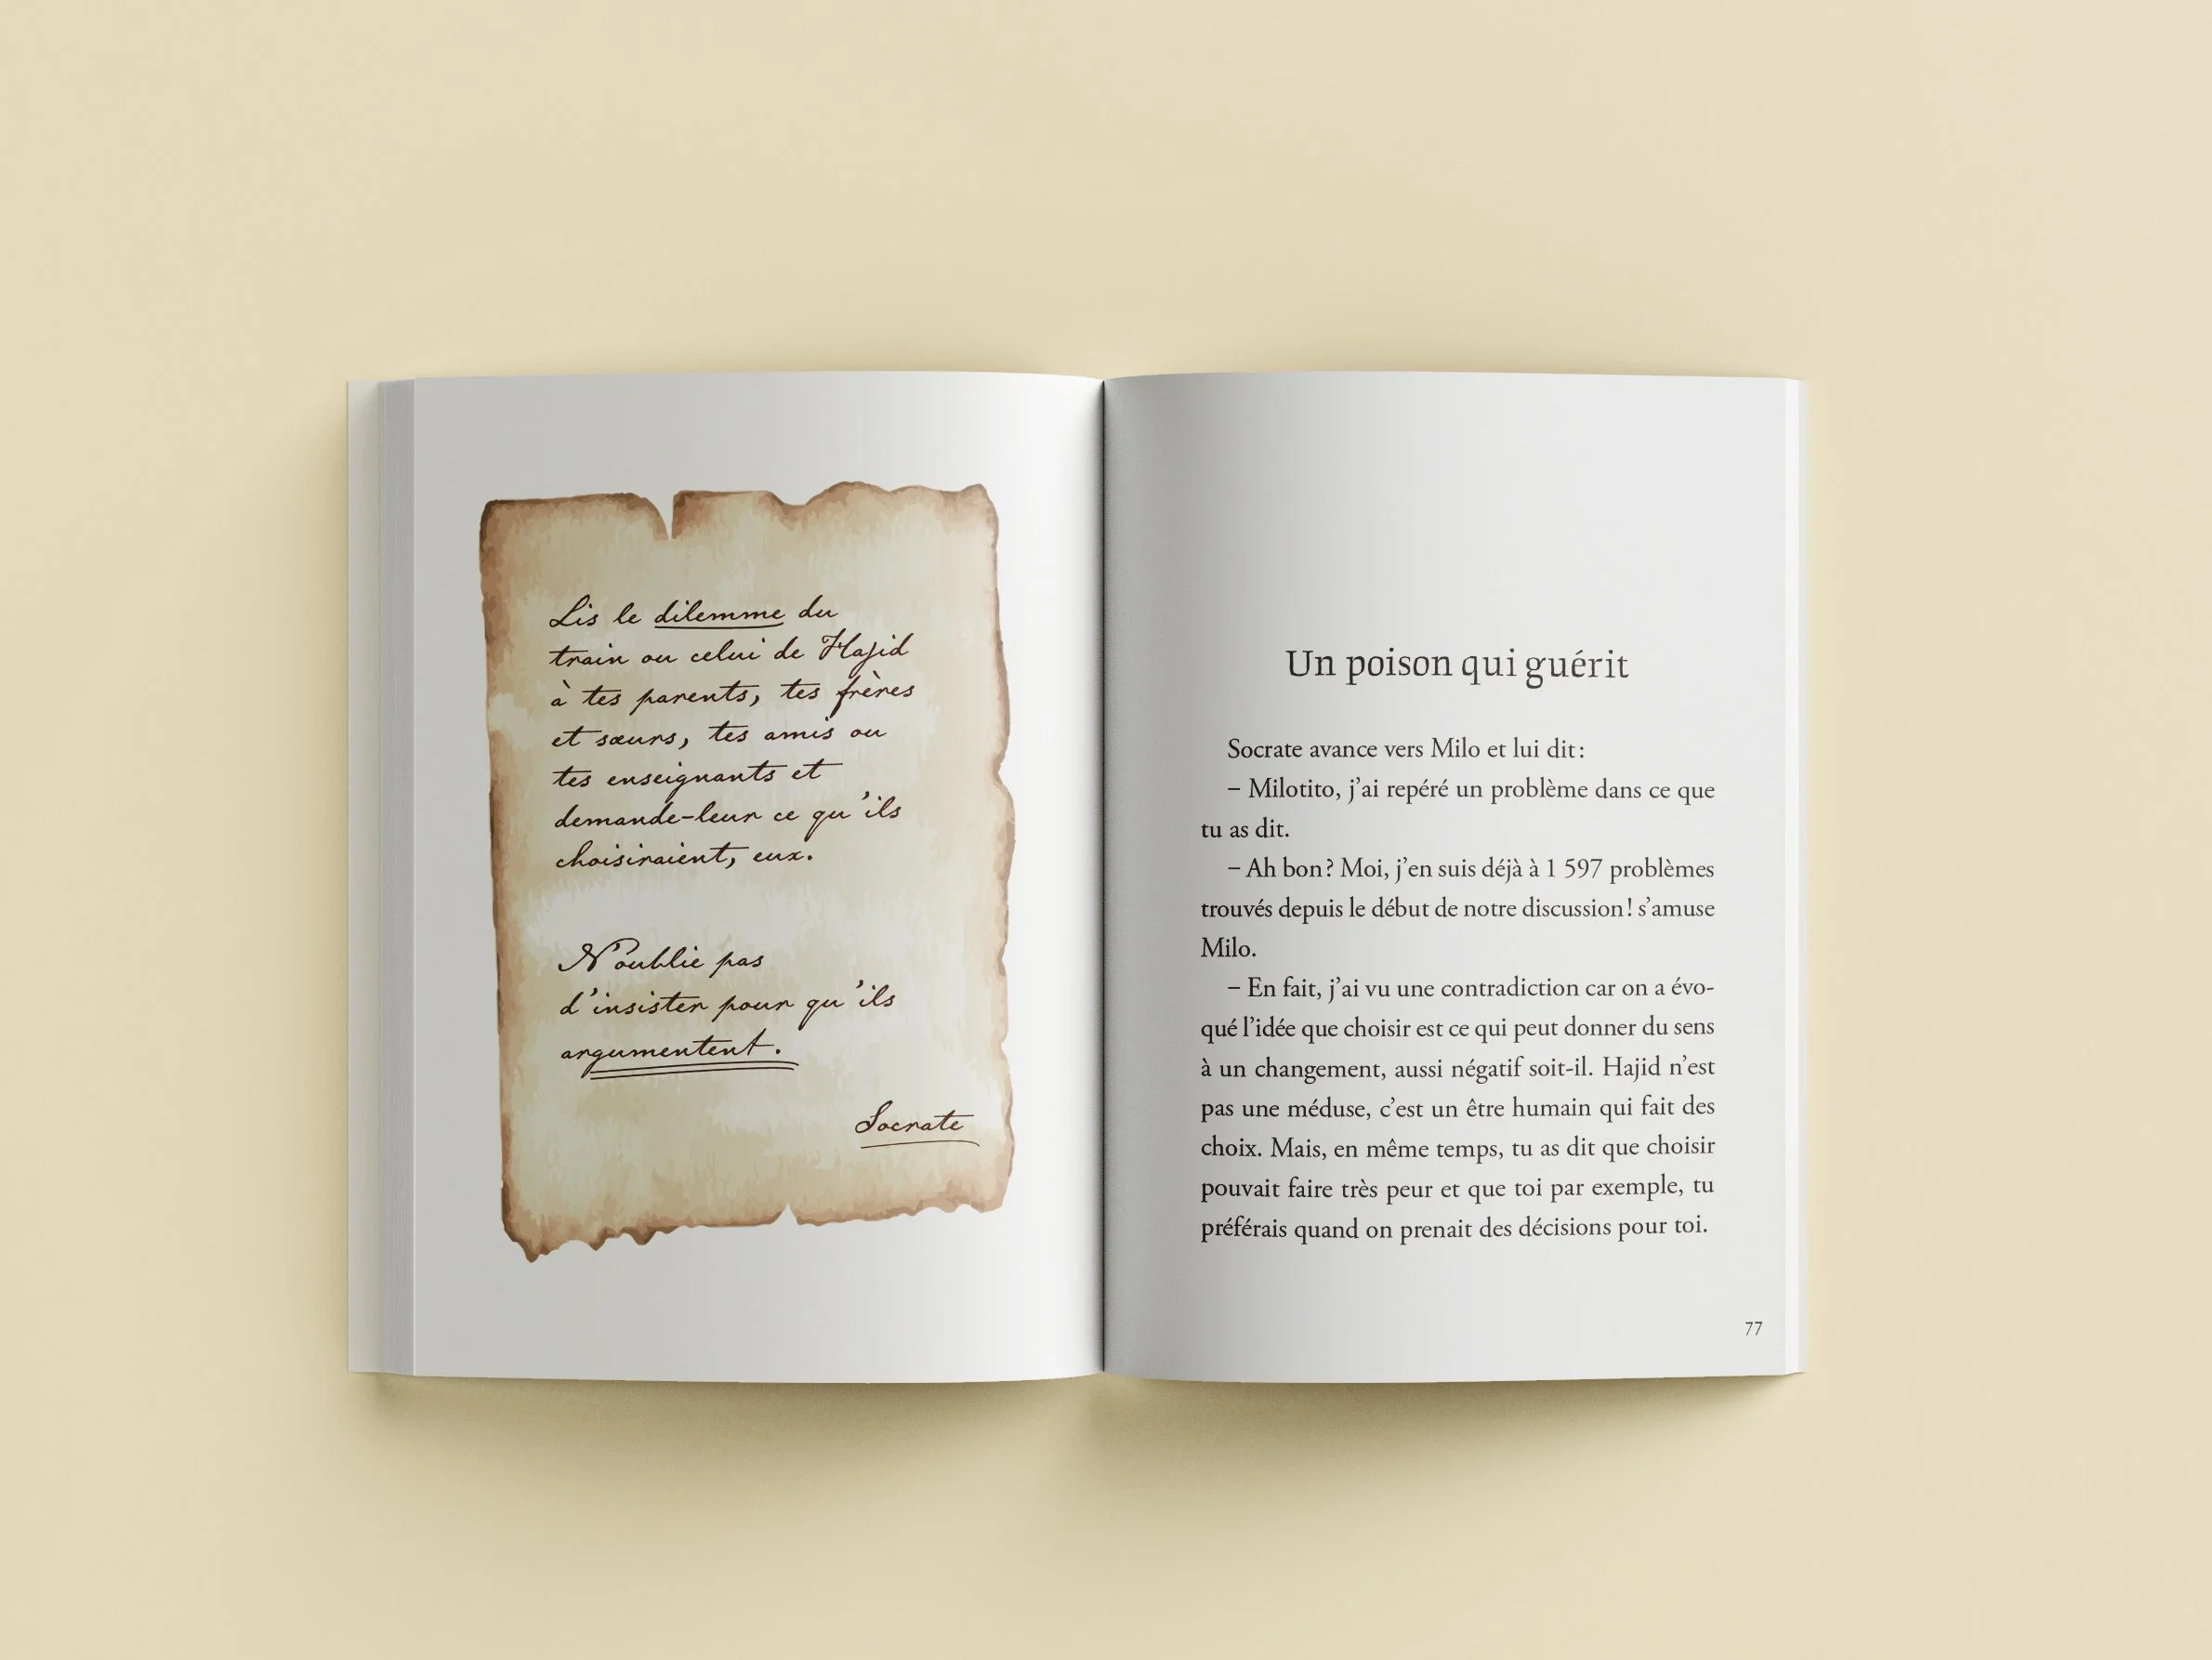 Lis le dilemme du
train ou celui de Hajid
à tes parents, tes frères
et sœurs, tes amis ou
tes enseignants et
demande-leur ce qu'ils
choisiraient, eux.
N'oublie pas
d'insister pour qu'ils
argumentent.
Socrate
Un poison qui guérit
Socrate avance vers Milo et lui dit :
– Milotito, j'ai repéré un problème dans ce que
tu as dit.
– Ah bon ? Moi, j'en suis déjà à 1 597 problèmes
trouvés depuis le début de notre discussion ! s'amuse
Milo.
– En fait, j'ai vu une contradiction car on a évo-
qué l'idée que choisir est ce qui peut donner du sens
à un changement, aussi négatif soit-il. Hajid n'est
pas une méduse, c'est un être humain qui fait des
choix. Mais, en même temps, tu as dit que choisir
pouvait faire très peur et que toi par exemple, tu
préférais quand on prenait des décisions pour toi.
77